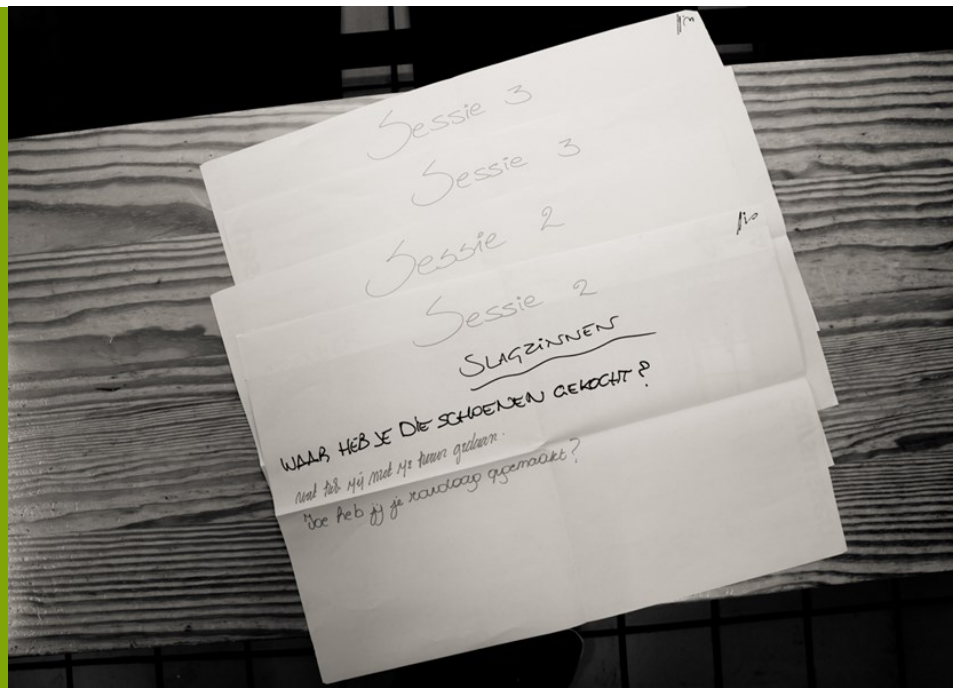 Sessie 3
Sessie 3
Sessie 2
Sessie 2
SLAGZINNEN
WAAR HEB JE DIE SCHOENEN GEKOCHT?
heb jij met je gedaan.
Hoe heb jij je vandaag gemaakt?